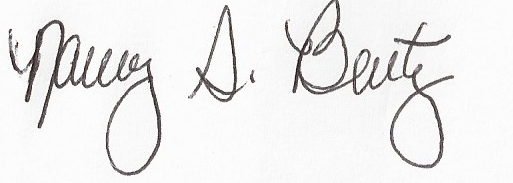 Nancy S. Bentz